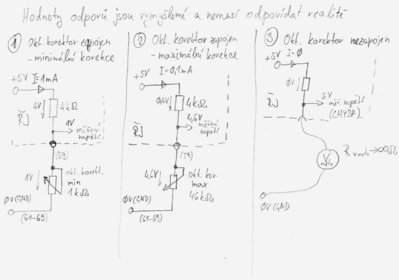 Hodnoty odporů jsou vymyšlené a nemusí odpovídat realitě
① Okt. korektor zapojen
- minimální korekce
+5V I=1mA
4V
4kΩ
ŘJ
1V
měření
napětí
1V
okt. korekt.
min
1kΩ
ØV (GND)
② Okt. korektor zapojen
- maximální korekce
+5V
I=0,1mA
0,4V
4kΩ
ŘJ
4,6V
měření
napětí
4,6V
okt. kor.
max.
46kΩ
ØV (GND)
(61-69)
③ Okt. korektor nezapojen
I=Ø
+5V
ØV
ŘJ
5V
měř. napětí
(CHYBA)
ØV (GND)